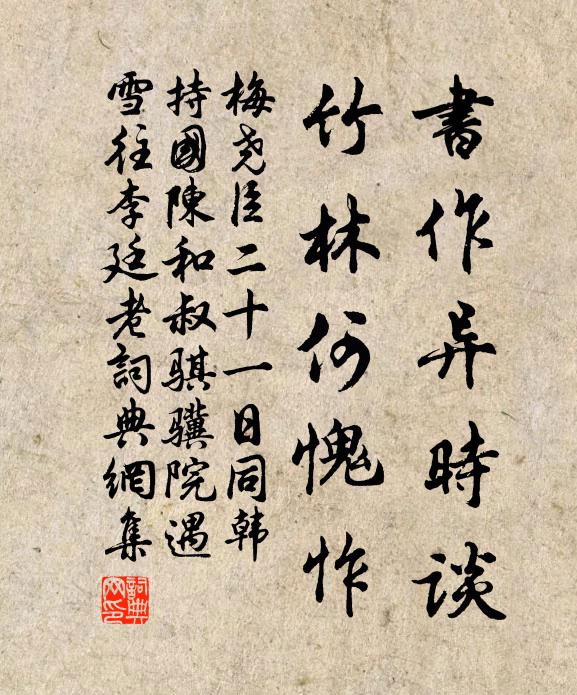 書作异時談
竹林何愧怍
梅尧臣二十一日同韩
持國陳和叔骐骥院遇
雪往李廷老詞典網集
詞典网印